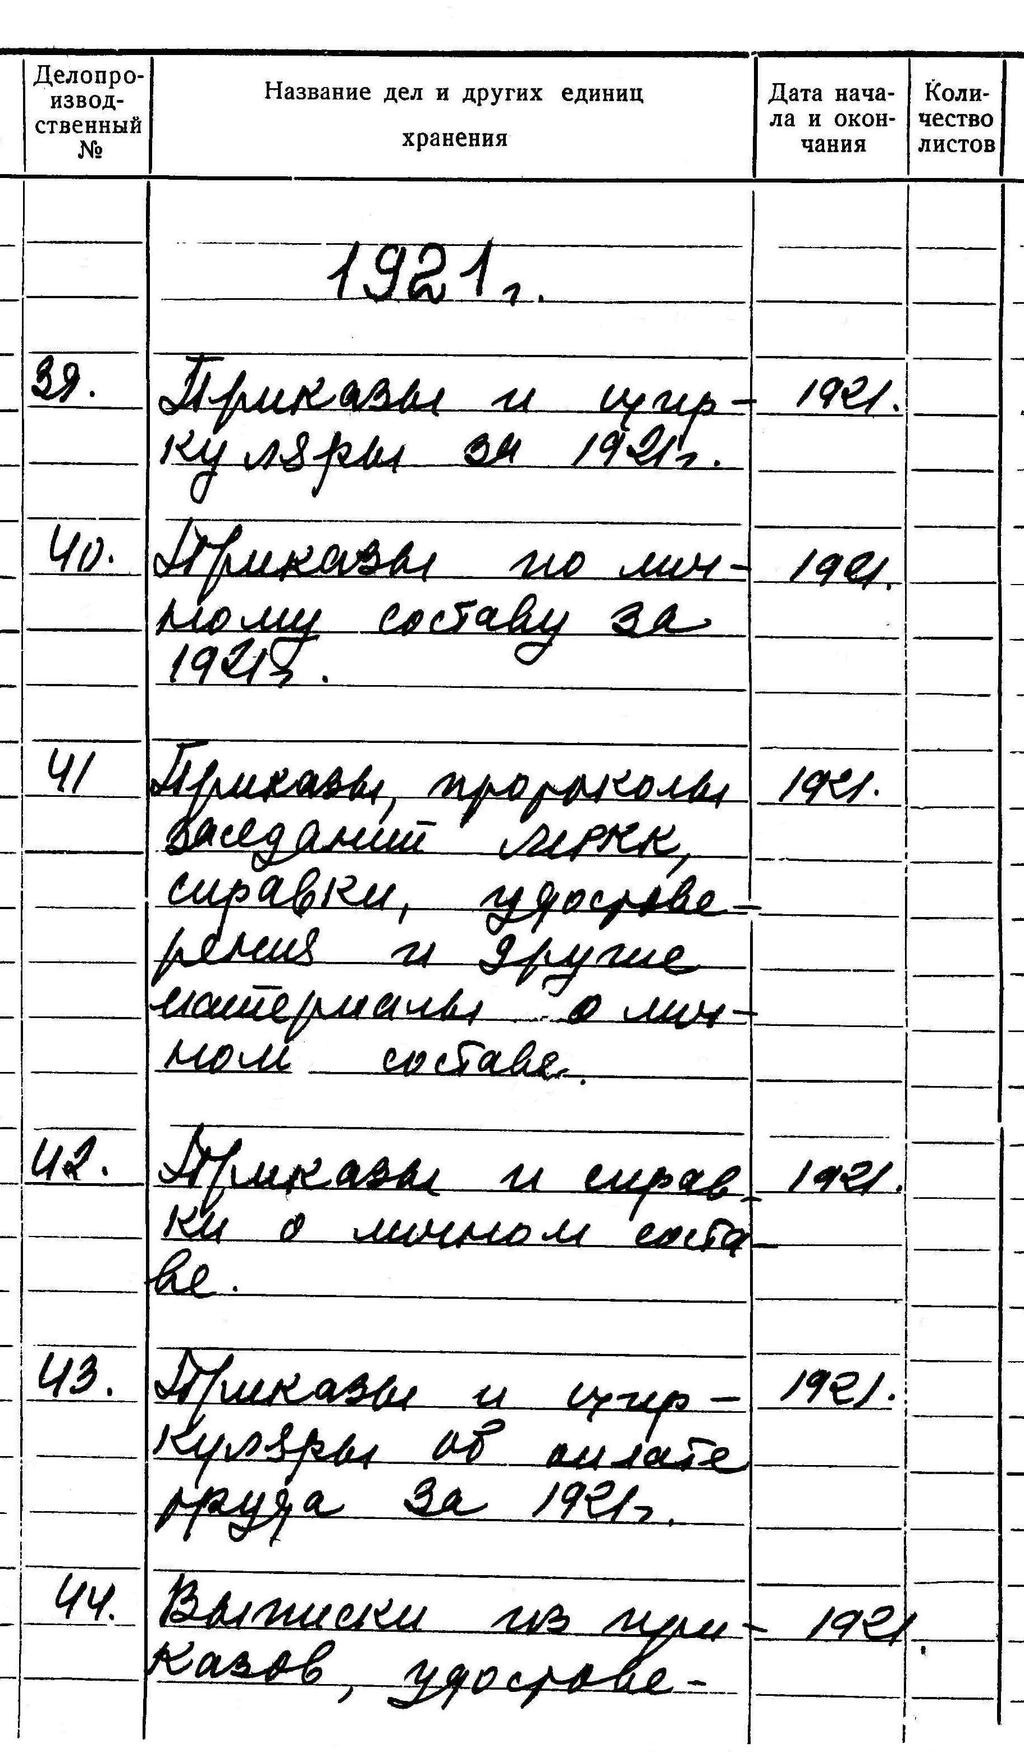 Делопро-
извод-
ственный
№
Название дел и других единиц
хранения
Дата нача-
ла и окон-
чания
Коли-
чество
листов
1921 г.
39. Приказы и цир- 1921.
куляры за 1921 г.
40. Приказы по лич- 1921.
ному составу за
1921 г.
41 Приказы, протоколы 1921.
заседаний
справки, удостове-
рения и другие
материалы о лич-
ном составе.
42. Приказы и справ- 1921.
ки о личном соста-
ве.
43. Приказы и цир- 1921.
куляры об оплате
труда за 1921 г.
44. Выписки из при- 1921.
казов, удостове-